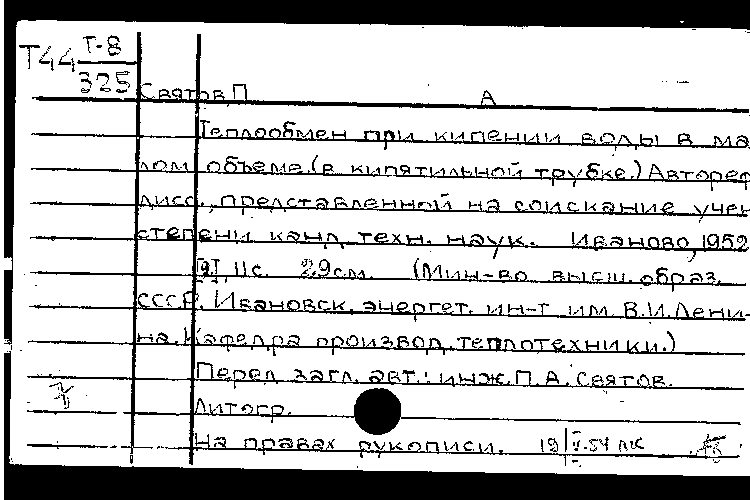 Т44 Т-8
325
Святов, П А
Теплообмен при кипении воды в ма
лом объеме. (в кипятильной трубке.) Автореф
дисс., представленной на соискание учен
степени канд. техн. наук. Иваново, 1952
11с. 29см. (Мин-во высш. образ.
СССР. Ивановск. энергет. ин-т им. В.И.Лени-
на. Кафедра производ. теплотехники.)
Перед загл. авт.: инж. П.А. Святов.
Литогр.
На правах рукописи. 19 V.54